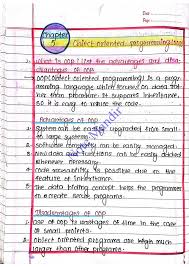 Date :
Page :
Chapter
5.
Object oriented programming
1. What is OOP? List the advantages and disa-
dvantages of OOP.
→ OOP (object oriented programming) is a prog-
ramming language which focused on data rather
than procedure. It supports inheritance,
so it is easy to reduce the code.
Advantages of OOP
1. System can be easily upgraded from small
to large systems.
2. Software complexity can be easily managed.
3. New data and functions can be easily added
whenever necessary.
4. Code reusability is possible due to the
feature of inheritance.
5. The data hiding concept helps the programmer
to create secure programs.
Disadvantages of OOP
1. Use of OOP is wastages of time in the case
of small projects.
2. Object oriented programs are much
larger than other programs.